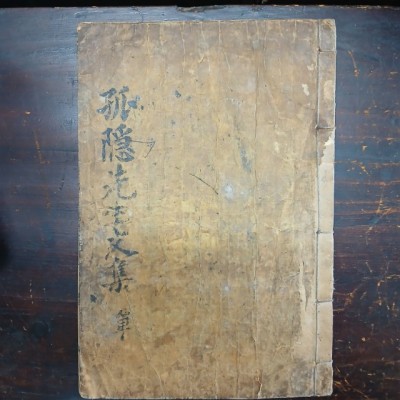 孤隠先生文集 單